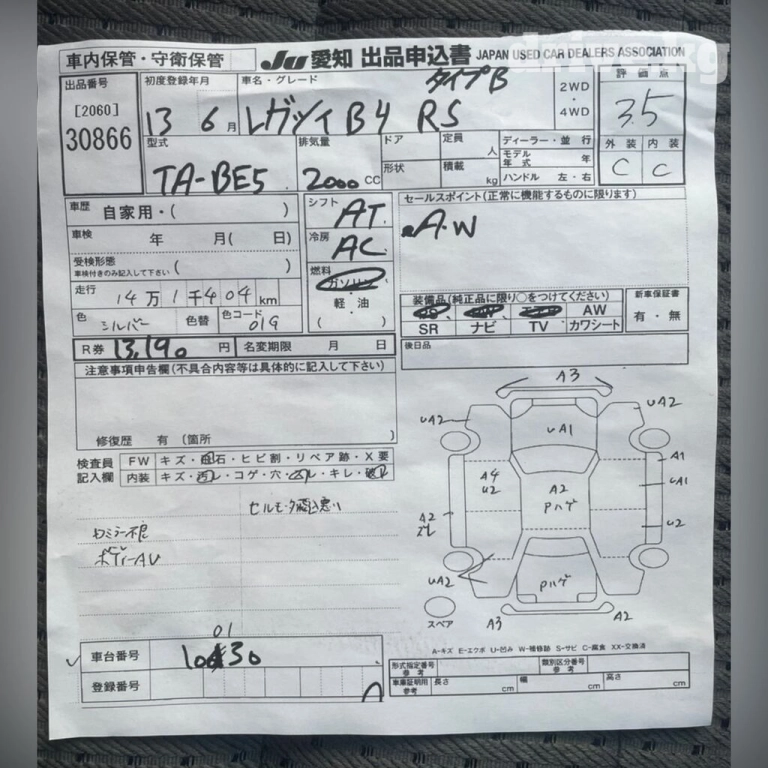 車内保管・守衛保管
JU 愛知 出品申込書 JAPAN USED CAR DEALERS ASSOCIATION
drive.kg
出品番号
[2060]
30866
初度登録年月
13 6月
車名・グレード
タイプB
レガツィB4 RS
2WD
・
4WD
評価点
3.5
外装 内装
C C
型式
TA-BE5
排気量
2000 CC
ドア
形状
定員 人
積載 kg
ディーラー・並行
モデル年式 年
ハンドル 左・右
車歴 自家用・( )
車検 年 月( 日)
受検形態
車検付きのみ記入して下さい ( )
走行
14万1千404km
色 シルバー 色替 色コード 01G
シフト AT
冷房 AC
燃料
ガソリン
・
軽・油
( )
セールスポイント(正常に機能するものに限ります)
A・W
装備品(純正品に限り○をつけてください)
AW
SR ナビ TV カワシート
新車保証書
有・無
R券 13,190 円 名変期限 月 日
後日品
注意事項申告欄(不具合内容等は具体的に記入して下さい)
修復歴 有 〔箇所 〕
検査員
記入欄
FW キズ・飛石・ヒビ割・リペア跡・X要
内装 キズ・汚れ・コゲ・穴・スレ・キレ・破れ
セルモータ飛込悪い
ボディーAU
A3
UA2
UA2
UA1
A1
UA1
A4
U2
A2
Pハゲ
U2
A2
ズレ
UA2
Pハゲ
スペア
A3
A2
A-キズ E-エクボ U-凹み W-補修跡 S-サビ C-腐食 XX-交換済
01
車台番号 10030
登録番号
型式指定番号
参考
類別区分番号
参考
車庫証明用
参考
長さ cm
幅 cm
高さ cm